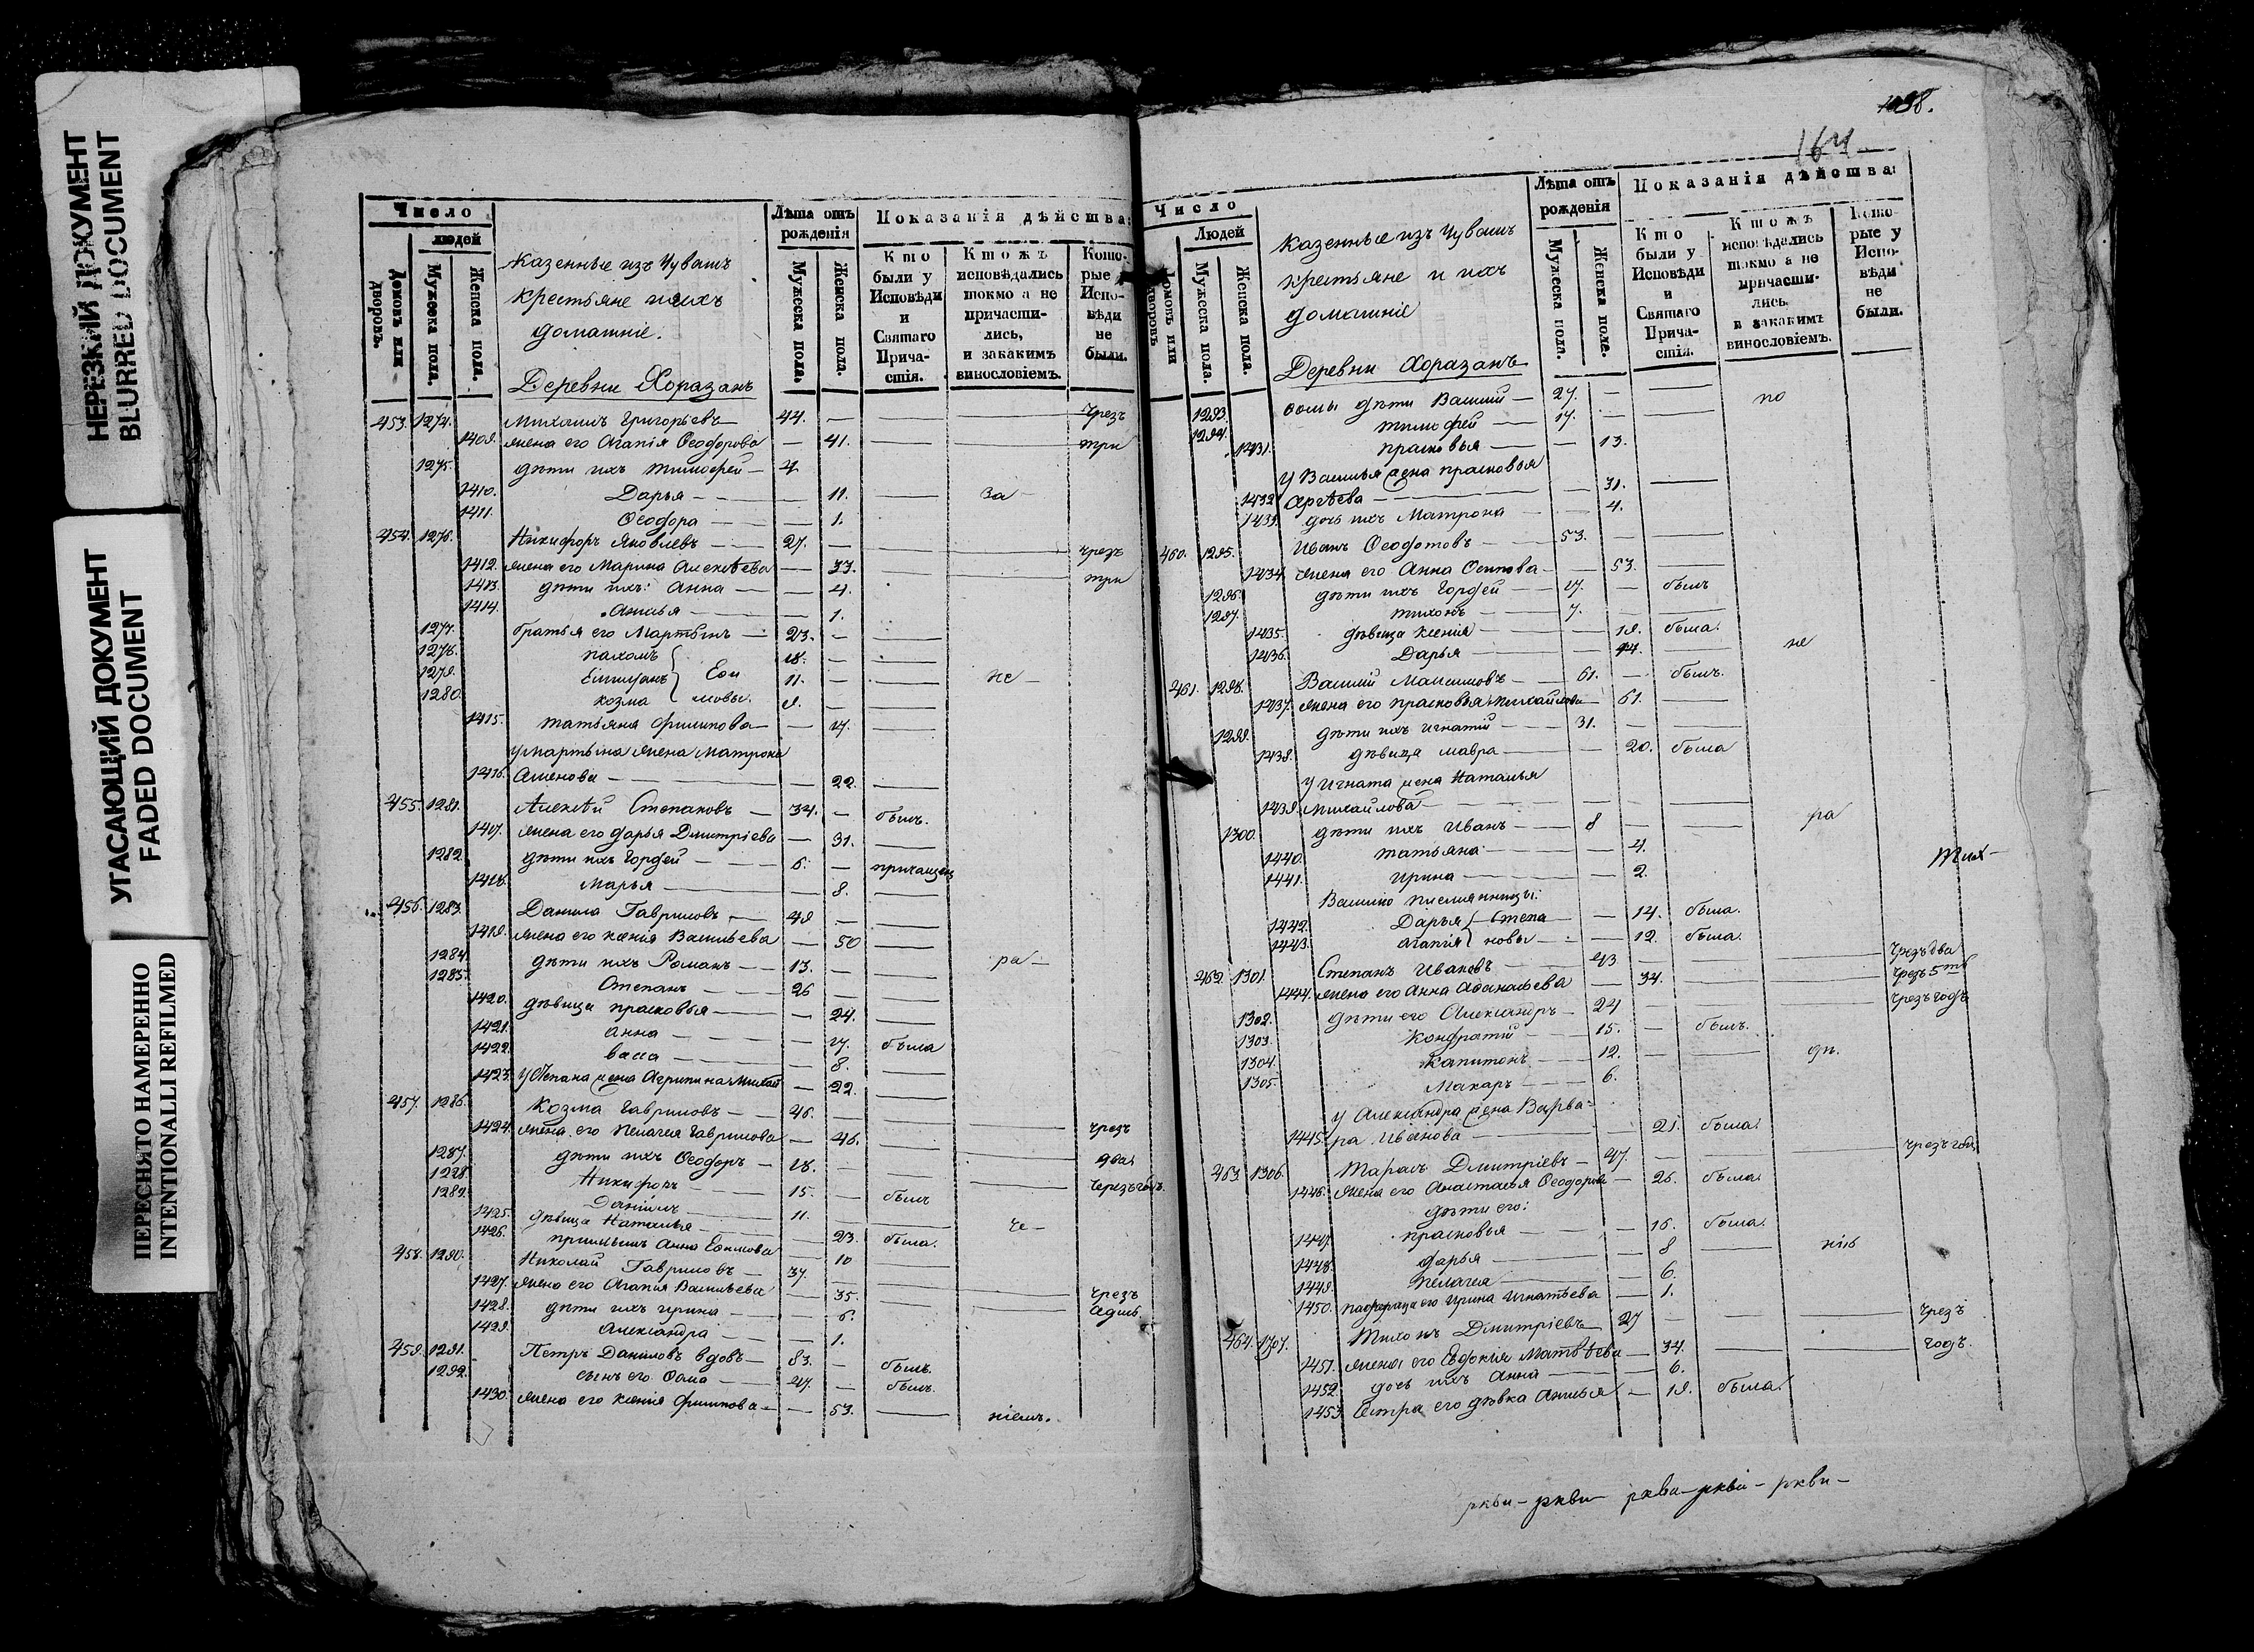 НЕРЕЗКИЙ ДОКУМЕНТ
BLURRED DOCUMENT
УГАСАЮЩИЙ ДОКУМЕНТ
FADED DOCUMENT
ПЕРЕСНЯТО НАМЕРЕННО
INTENTIONALLI REFILMED
Число
людей
Домовъ или дворовъ.
Мужеска пола.
Женска пола.
Казенные изъ Чувашъ
крестьяне и ихъ
домашніе.
Деревни Хоразанъ
Лѣта отъ рожденія
Мужеска пола.
Женска пола.
Показанія дѣйства:
Кто были у Исповѣди и Святаго Прича-стія.
Ктожъ исповѣдались токмо а не причасти-лись, и закакимъ винословіемъ.
Кото-рые у Испо-вѣди не были.
453. 1274. Михаилъ Григорьевъ 44. — чрезъ
1409. жена его Агапія Ѳеодорова — 41. три
1275. дѣти ихъ Тимофей 4.
1410. Дарья — 11. за
1411. Ѳеодора — 1.
454. 1276. Никифоръ Яковлевъ 27. — чрезъ
1412. жена его Марина Алексѣева — 33. три
1413. дѣти ихъ: Анна — 4.
1414. Анисья — 1.
1277. братья его Мартынъ 23. —
1278. Пахомъ 18. —
1279. Емильянъ Ефи 11. — не
1280. Козма мовы. 9. —
1415. Татьяна Филипова — 17.
у Мартына жена Матрона
1416. Аменова — 22.
455. 1281. Алексѣй Степановъ 34. — былъ.
1417. жена его Дарья Дмитріева — 31.
1282. дѣти ихъ Гордей 6. — причащенъ
1418. Марья — 8.
456. 1283. Данила Гавриловъ 49 —
1419. жена его Ксенія Васильева — 50
1284. дѣти ихъ Романъ 13. — ра
1285. Степанъ 26 —
1420. дѣвица Прасковья — 24.
1421. Анна — 17. была
1422. Васса — 8.
1423. у Степана жена Агрипина — 22.
457. 1286. Козма Гавриловъ 46.
1424. жена его Пелагея Гаврилова — 46. чрезъ
1287. дѣти ихъ Ѳеодоръ 18. — два
1288. Никифоръ 15. — былъ
1289. Даніилъ 11.
1425. дѣвица Наталья — 23. была. че
1426. Анна Ефимова — 10
458. 1290. Николай Гавриловъ 37. —
1427. жена его Агапія Васильева — 35. чрезъ
1428. дѣти ихъ Ирина — 6.
1429. Александра — 1.
459. 1291. Петръ Даниловъ вдовъ 83. — былъ.
1292. сынъ его Ѳома 47. — былъ.
1430. жена его Ксенія Филипова — 53. ніемъ.
1098.
164
Число
Людей
Домовъ или дворовъ
Мужеска пола.
Женска пола.
Казенные изъ Чувашъ
крестьяне и ихъ
домашніе
Деревни Хоразанъ
Лѣта отъ рожденія
Мужеска пола.
Женска пола.
Показанія дѣйства:
Кто были у Исповѣди и Святаго Прича-стія.
Ктожъ исповѣдались токмо а не причасти-лись, и закакимъ винословіемъ.
Кото-рые у Испо-вѣди не были.
1293. Ѳомы дѣти Василій 27. — по
1294. Тимофей 17. —
1431. Прасковья — 13.
у Василья жена Прасковья
1432. Сергѣева — 31.
1433. дочь ихъ Матрона — 4.
460. 1295. Иванъ Ѳеодотовъ 53. —
1434. жена его Анна Осипова — 53.
1296. дѣти ихъ Гордей 17. — былъ
1297. Тихонъ 7.
1435. дѣвица Ксенія — 19. была.
1436. Дарья — не
461. 1298. Василій Максимовъ 61. — былъ.
1437. жена его Прасковья Михайлова 61.
1299. дѣти ихъ Игнатій 31. —
1438. дѣвица Мавра — 20. была
у Игната жена Наталья
1439. Михайлова —
1300. дѣти ихъ Иванъ 8 — ра
1440. Татьяна — 4.
1441. Ирина — 2.
Василію племянницы:
1442. Дарья Степа — 14. была.
1443. Агапія новы — 12. была.
462. 1301. Степанъ Ивановъ 43 — чрезъ два
1444. жена его Анна Афанасьева — 34. чрезъ 5ть
1302. дѣти его Александръ 24 — чрезъ годъ
1303. Кондратій 15. — былъ.
1304. Капитонъ 12. — дѣ.
1305. Макаръ 6.
у Александра жена Варва-
1445. ра Иванова — 21. была.
463. 1306. Тарасъ Дмитріевъ 47. — чрезъ годъ
1446. жена его Анастасья Ѳеодорова — 26. была.
дѣти его:
1447. Прасковья — 16. была.
1448. Дарья — 8 ніѣ
1449. Пелагея — 6.
1450. падчерица его Ирина Игнатьева — 1.
464. 1307. Тихонъ Дмитріевъ 27 — чрезъ
1451. жена его Евдокія Матвѣева — 34. годъ.
1452. дочь ихъ Анна — 6.
1453. Сестра его дѣвка Анисья — 19. была.
Тих-
ркви- ркви- ркви- ркви- ркви-